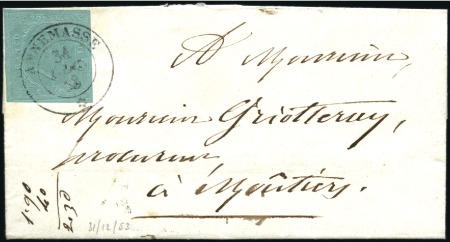 ANNEMASSE
31
A Monsieur
Monsieur Griotteray,
procureur,
à Moûtiers.
1.90
40
31/12/53